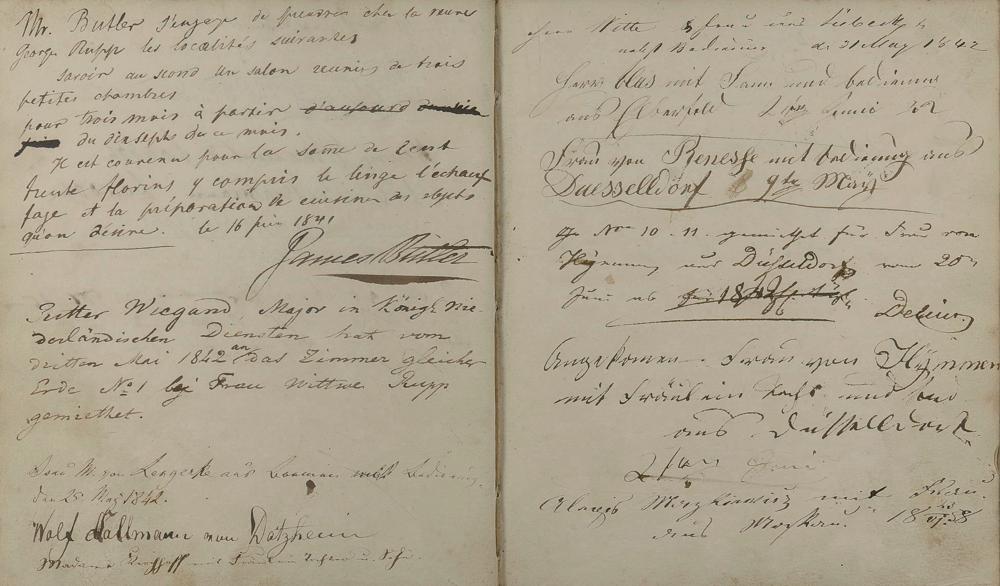 Mr. Butler s'engage de prendre chez la veuve
George Rupp les localités suivantes
Savoir au second un salon reunies de trois
petites chambres
pour trois mois à partir d'aujourd
du dixsept du ce mois.
Il est convenu pour la somme de cent
trente florins y compris le linge l'échauf
fage et la préparation de cuisine des objets
qu'on désire. le 16 juin 1841
James Butler
Ritter Wiegand, Major in Königl. Nie-
derländischen Diensten hat vom
dritten Mai 1842 an das Zimmer gleicher
Erde No 1 bei Frau Wittwe Rupp
gemiethet.
Frau M. von Lengerke aus Bremen mit Bedienung
den 25 May 1842.
Wolf Hallmann von Datzheim
Madame Kirchhoff mit Fräulein Tochter u. Sohn.
Herr Witte & Frau aus Lübeck
nebst Bedienung de 21 May 1842
Herr blas mit Frau und bedienung
aus Elberfeld 2 Juni 42
Frau von Renesse mit bedienung aus
Duesselldorf 9ten May
No 10 - 11 gemiethet für Frau von
Hymmen aus Düsseldorf vom 20ten
Juni ab
Delius
Angekomen Frau von Hymmen
mit Fräulein und
aus Dusselldorf
2 Juni
Alouis mit Frau
aus Moskau. 18 58